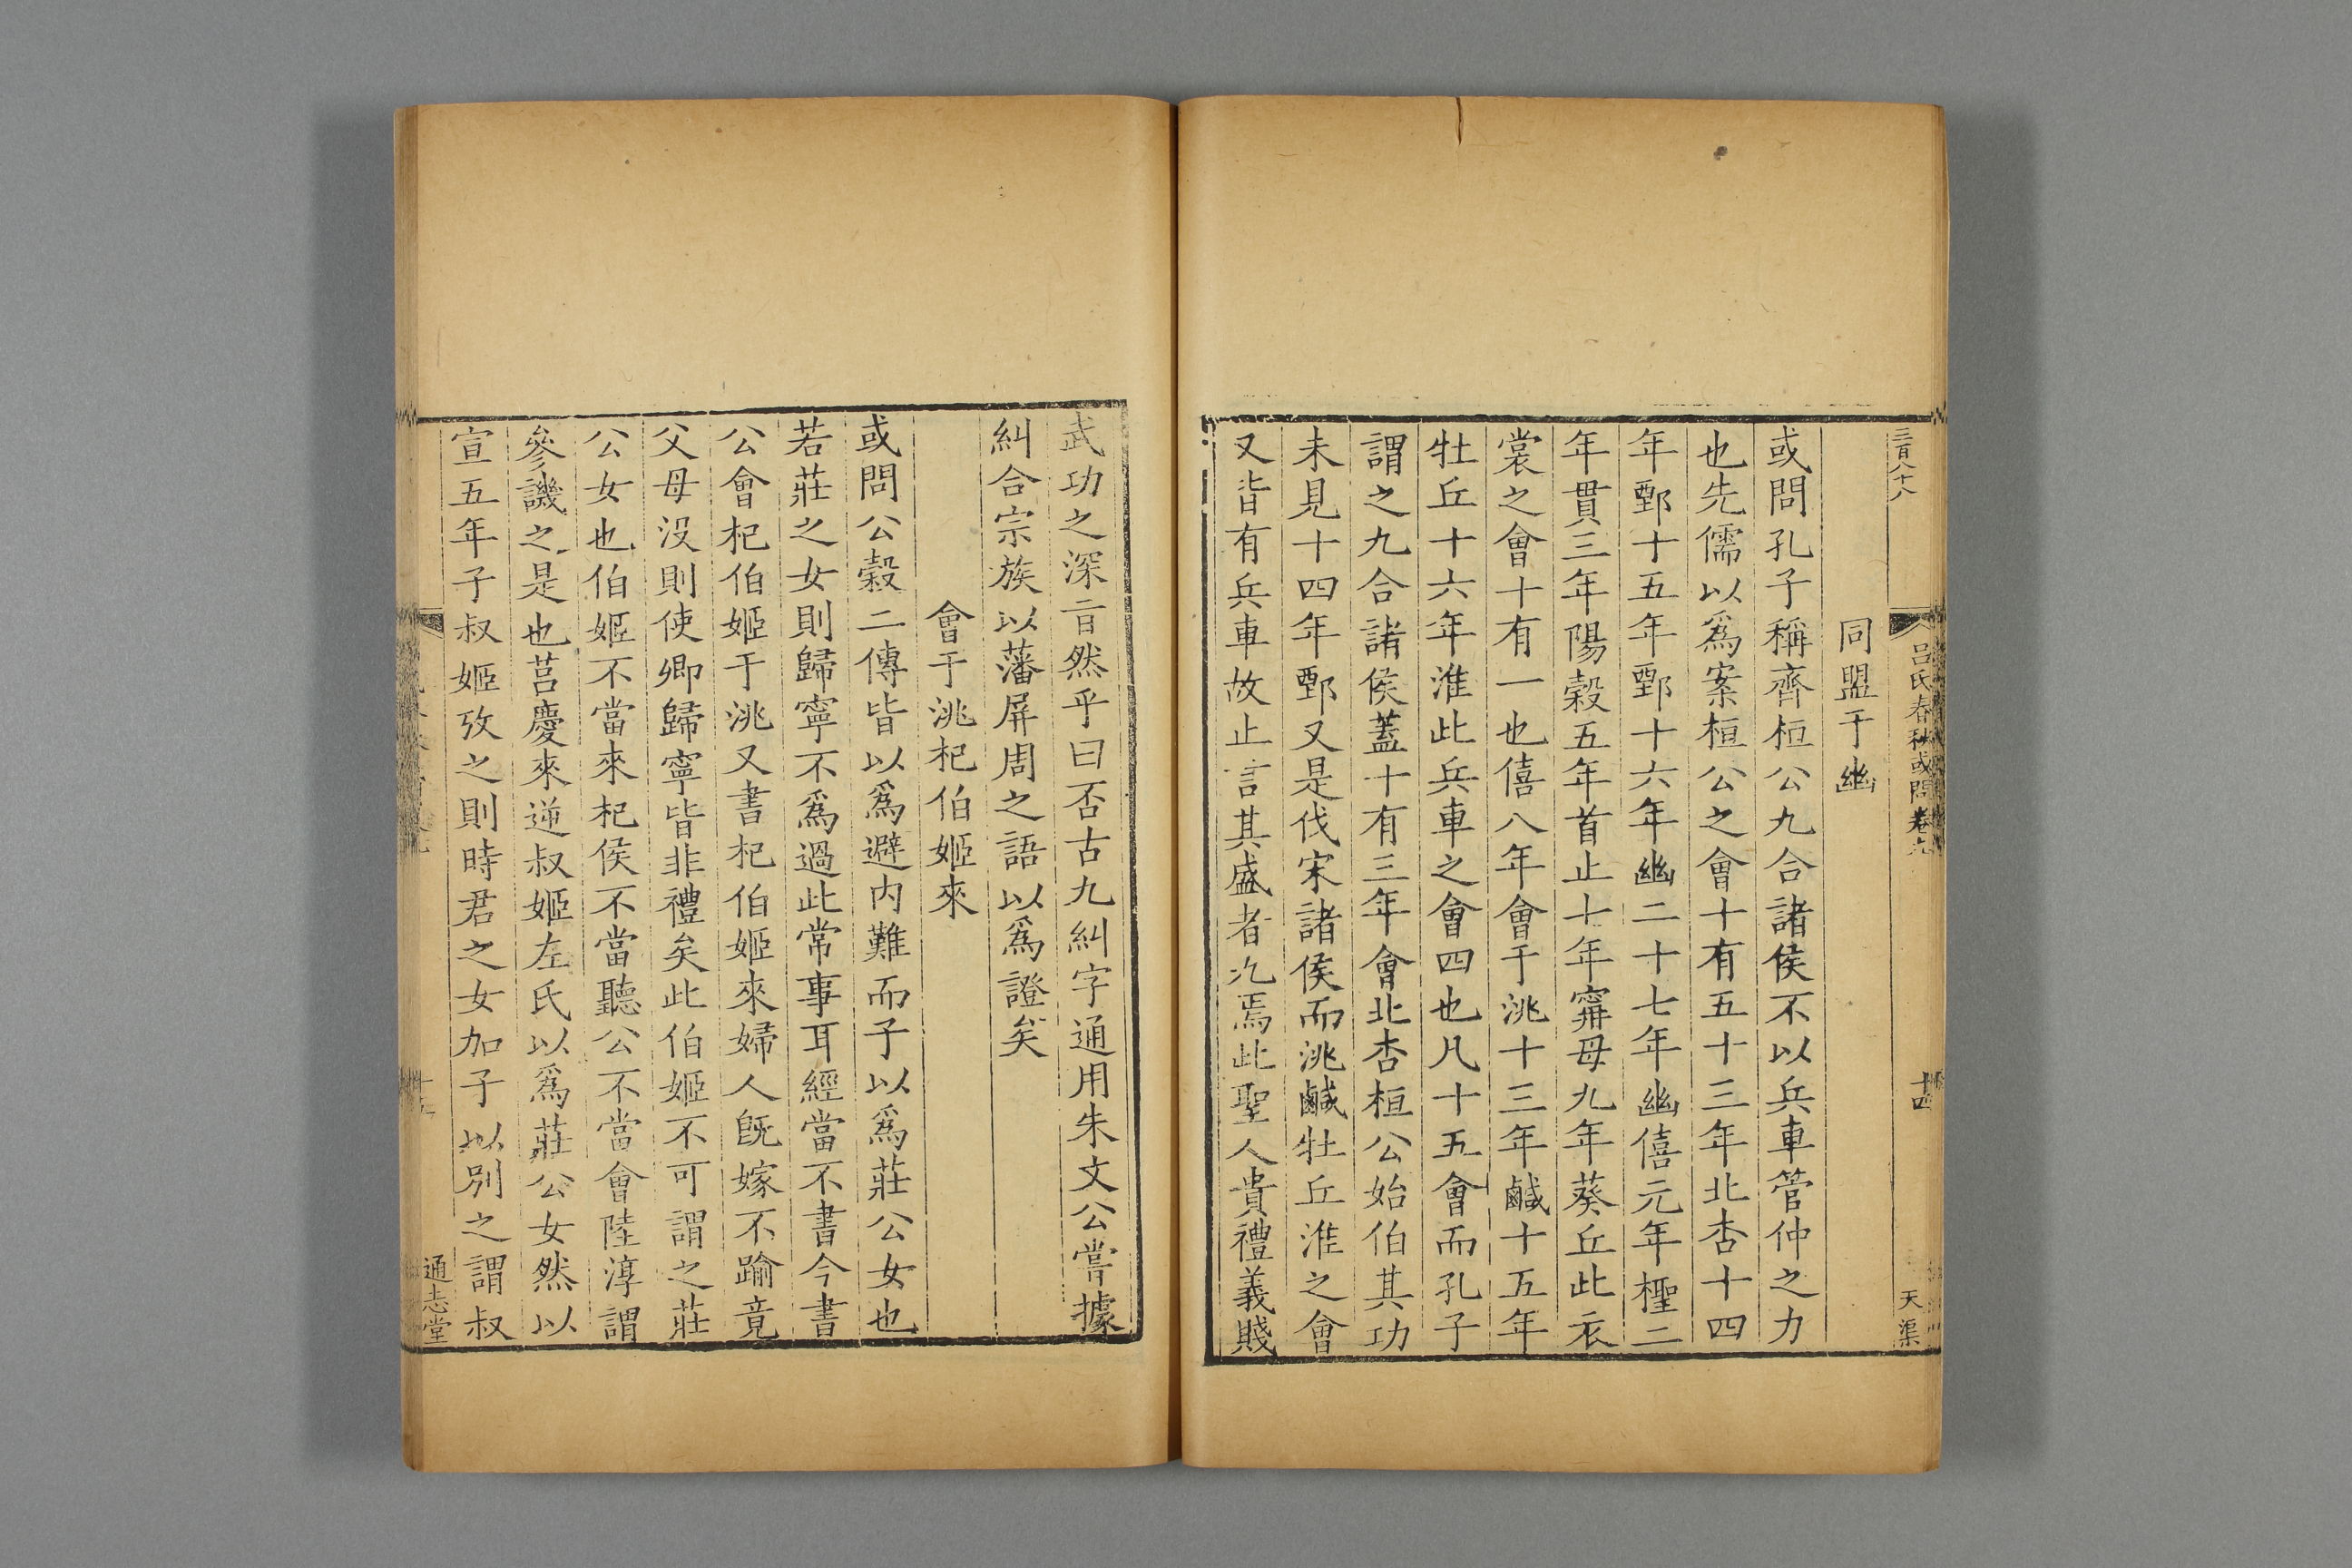 三百八十八
呂氏春秋或問卷九
十四
天渠
同盟于幽
或問孔子稱齊桓公九合諸侯不以兵車管仲之力
也先儒以爲案桓公之會十有五十三年北杏十四
年鄄十五年鄄十六年幽二十七年幽僖元年檉二
年貫三年陽榖五年首止七年甯母九年葵丘此衣
裳之會十有一也僖八年會于洮十三年鹹十五年
牡丘十六年淮此兵車之會四也凡十五會而孔子
謂之九合諸侯蓋十有三年會北杏桓公始伯其功
未見十四年鄄又是伐宋諸侯而洮鹹牡丘淮之會
又皆有兵車故止言其盛者九焉此聖人貴禮義賤
武功之深旨然乎曰否古九糾字通用朱文公嘗據
糾合宗族以藩屏周之語以爲證矣
會于洮杞伯姬來
或問公榖二傳皆以爲避内難而子以爲莊公女也
若莊之女則歸寧不爲過此常事耳經當不書今書
公會杞伯姬于洮又書杞伯姬來婦人旣嫁不踰竟
父母没則使卿歸寧皆非禮矣此伯姬不可謂之莊
公女也伯姬不當來杞侯不當聽公不當會陸淳謂
參譏之是也莒慶來逆叔姬左氏以爲莊公女然以
宣五年子叔姬攷之則時君之女加子以别之謂叔
十五
通志堂